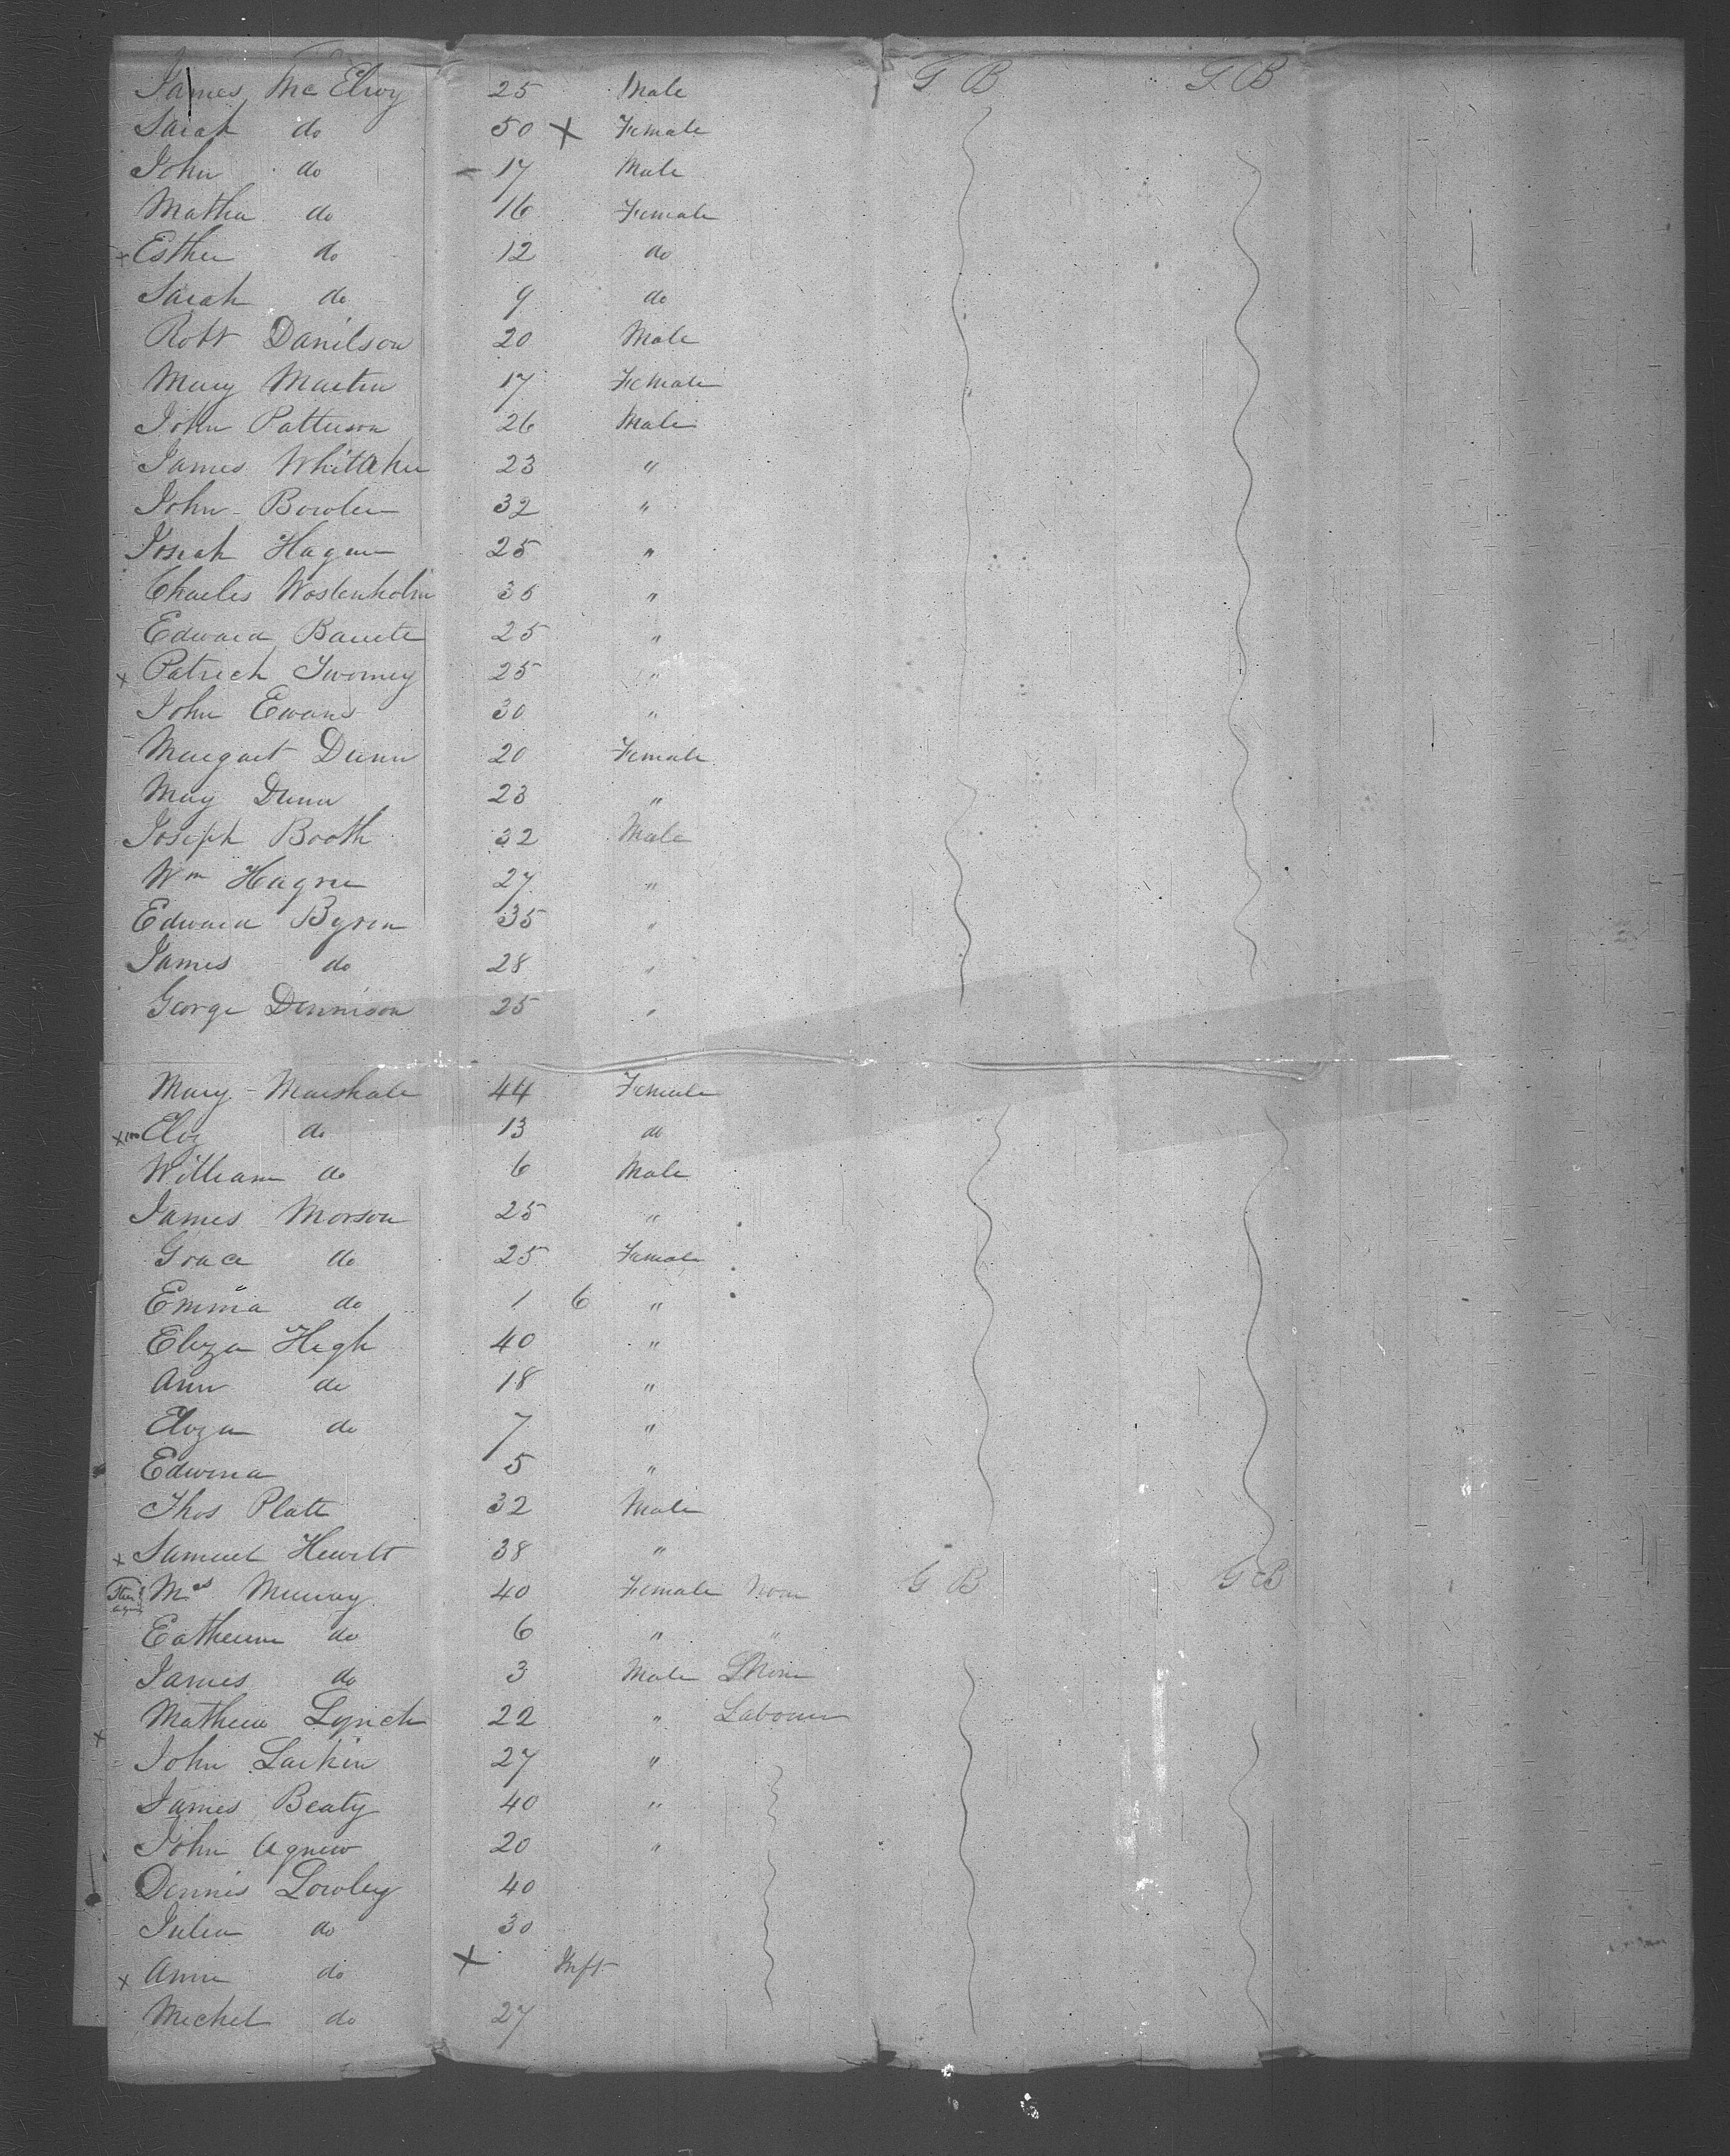 James McElroy 25 Male G B G B
Sarah do 50 x Female
John do 17 Male
Matha do 16 Female
x Esther do 12 do
Sarah do 9 do
Robt Danilson 20 Male
Mary Martin 17 Female
John Patterson 26 Male
James Whittaker 23 "
John Bowler 32 "
Josiah Hagan 25 "
Charles Wostenholm 36 "
Edward 25 "
x Patrick Twomey 25 "
John Evans 30 "
Margart Dunn 20 Female
May Dunn 23 "
Joseph Booth 32 Male
Wm Hagne 27 "
Edward Byron 35 "
James do 28 "
George Dennison 25 "
Mary Marshale 44 Female
x Eliz do 13 do
William do 6 Male
James Morson 25 "
Grace do 25 Female
Emma do 1 6 "
Eliza High 40 "
Ann do 18 "
Eliza do 7 "
Edwina 5 "
Thos Platt 32 Male
x Samuel Hewitt 38 "
Mrs Murray 40 Female G B G B
Catherine do 6 " "
James do 3 Male
x Mathew Lynch 22 " Labourer
John Larkin 27 "
James Beaty 40 "
John Agnew 20 "
Dennis Lowley 40
Julia do 30
x Annie do x Inft
Michel do 27